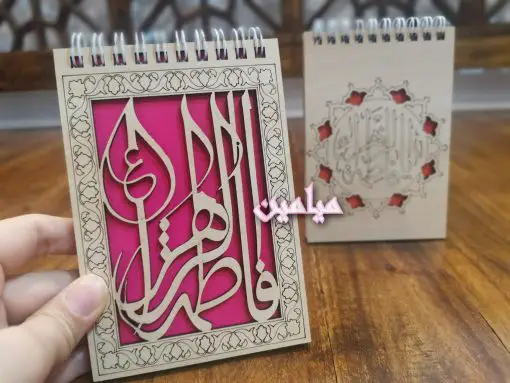 فاطمة الزهراء
میامین